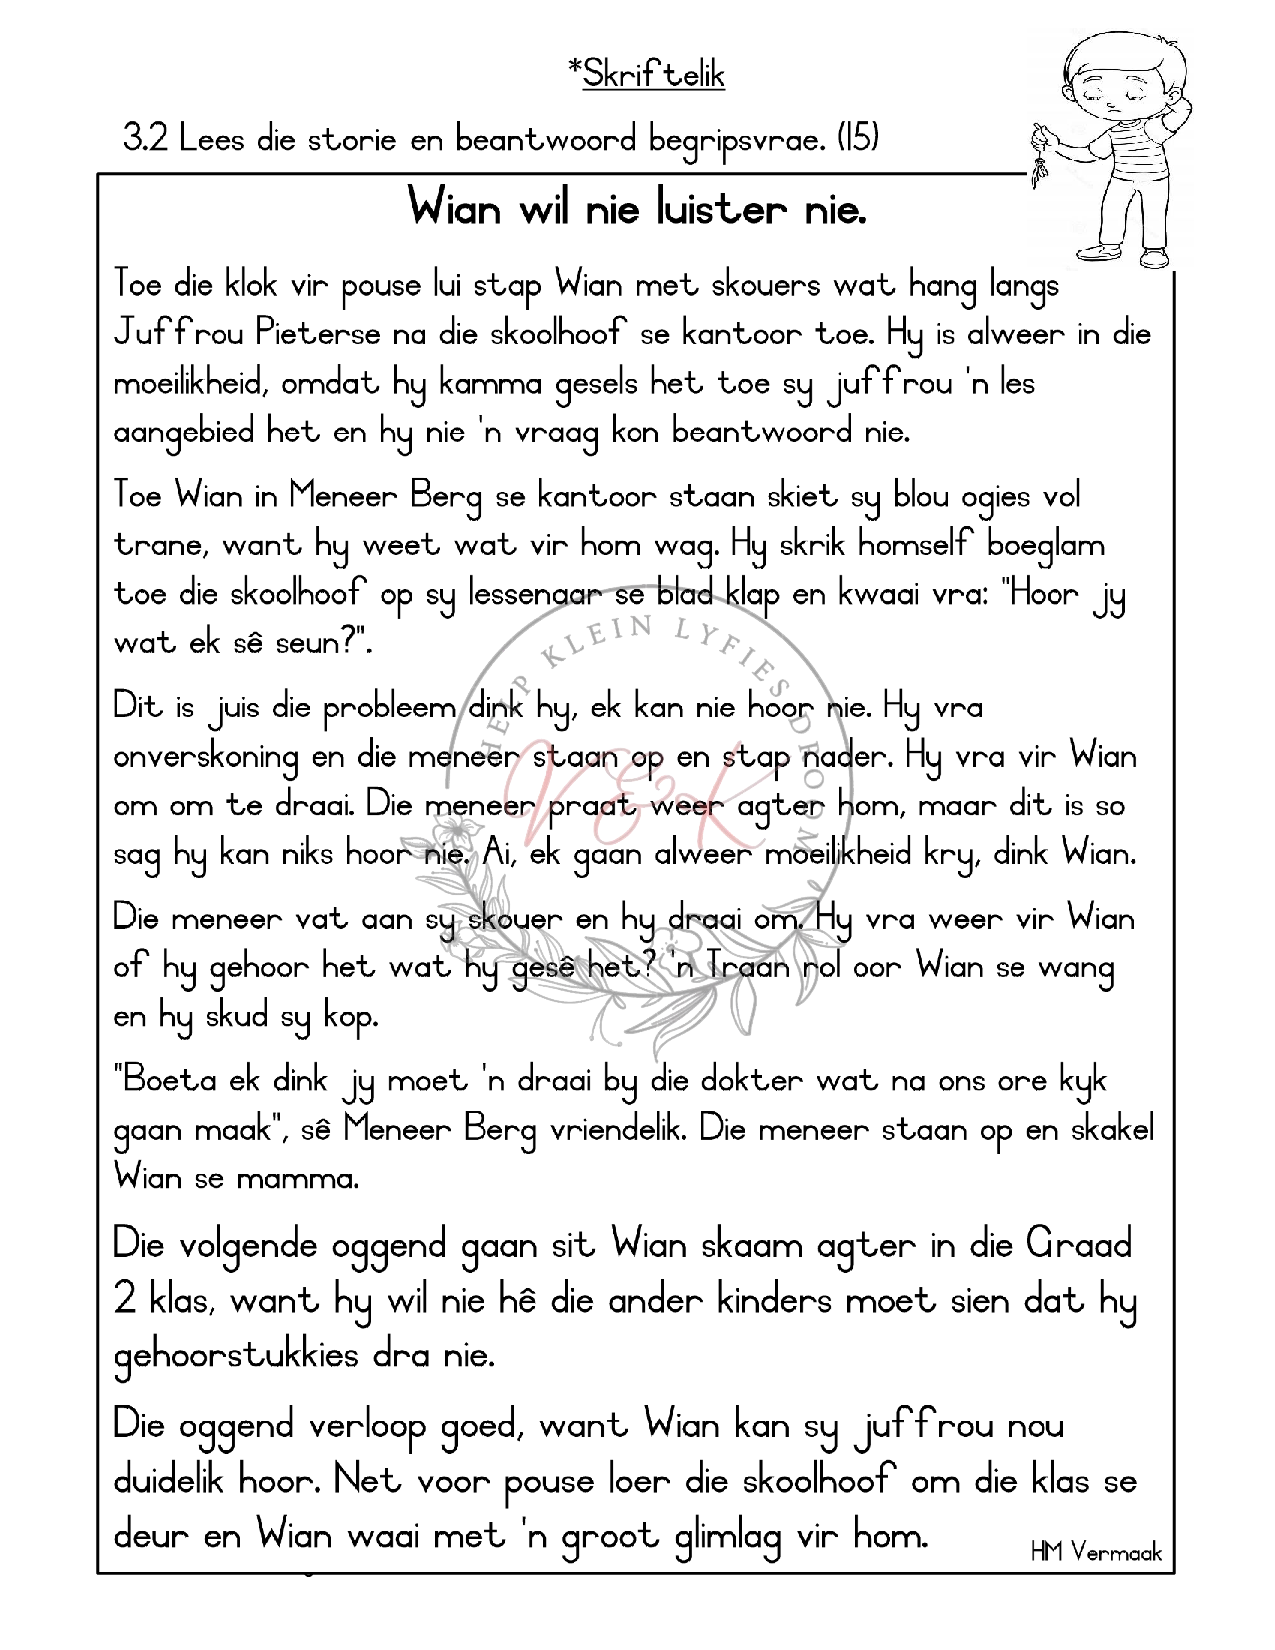 *Skriftelik
3.2 Lees die storie en beantwoord begripsvrae. (15)
Wian wil nie luister nie.
Toe die klok vir pouse lui stap Wian met skouers wat hang langs
Juffrou Pieterse na die skoolhoof se kantoor toe. Hy is alweer in die
moeilikheid, omdat hy kamma gesels het toe sy juffrou 'n les
aangebied het en hy nie 'n vraag kon beantwoord nie.
Toe Wian in Meneer Berg se kantoor staan skiet sy blou ogies vol
trane, want hy weet wat vir hom wag. Hy skrik homself boeglam
toe die skoolhoof op sy lessenaar se blad klap en kwaai vra: "Hoor jy
wat ek sê seun?".
Dit is juis die probleem dink hy, ek kan nie hoor nie. Hy vra
onverskoning en die meneer staan op en stap nader. Hy vra vir Wian
om om te draai. Die meneer praat weer agter hom, maar dit is so
sag hy kan niks hoor nie. Ai, ek gaan alweer moeilikheid kry, dink Wian.
Die meneer vat aan sy skouer en hy draai om. Hy vra weer vir Wian
of hy gehoor het wat hy gesê het? 'n Traan rol oor Wian se wang
en hy skud sy kop.
"Boeta ek dink jy moet 'n draai by die dokter wat na ons ore kyk
gaan maak", sê Meneer Berg vriendelik. Die meneer staan op en skakel
Wian se mamma.
Die volgende oggend gaan sit Wian skaam agter in die Graad
2 klas, want hy wil nie hê die ander kinders moet sien dat hy
gehoorstukkies dra nie.
Die oggend verloop goed, want Wian kan sy juffrou nou
duidelik hoor. Net voor pouse loer die skoolhoof om die klas se
deur en Wian waai met 'n groot glimlag vir hom.
HM Vermaak
HELP KLEIN LYFIES DROOM
V&K